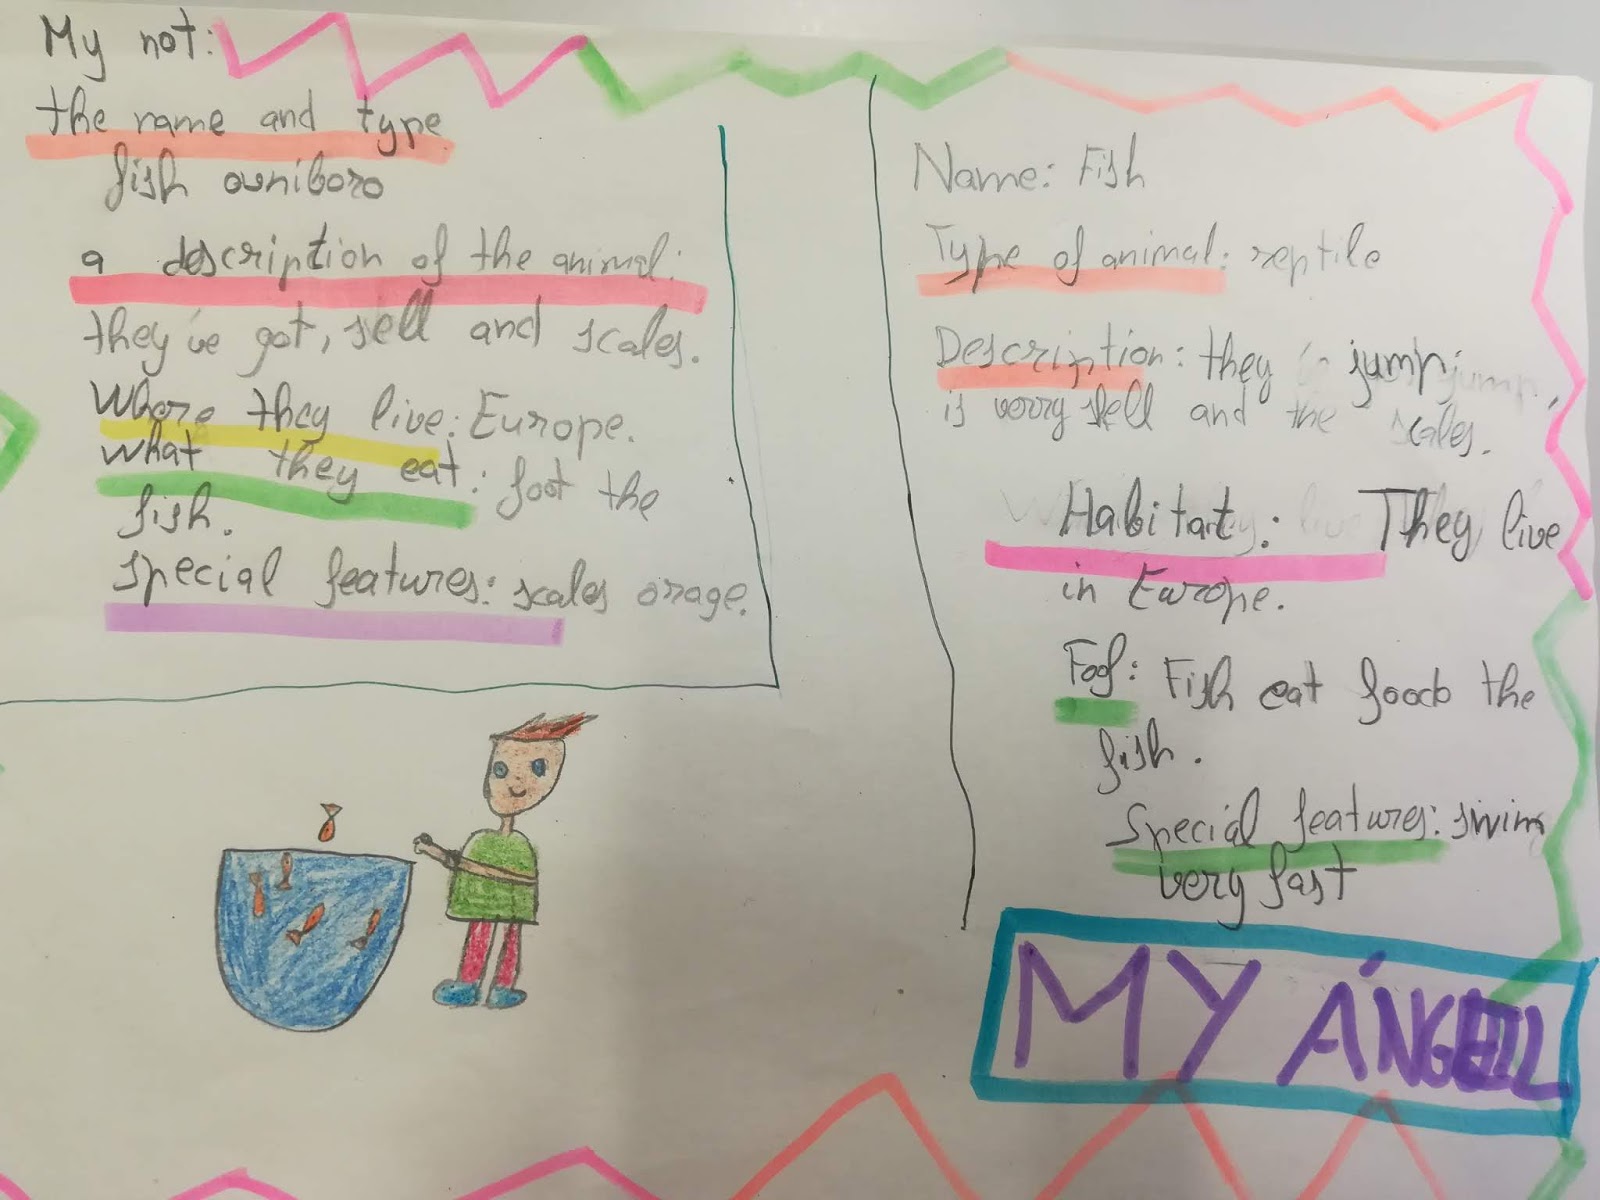 My not:
the name and type
fish owniboro
a description of the animal:
they've got, sell and scales.
Where they live: Europe.
what they eat: foot the
fish.
special features: scales orage.
Name: Fish
Type of animal: reptile
Description: they jump,
is verry sell and the scales.
Habitat: They live
in Europe.
Food: Fish eat foods the
fish.
Special features: swim
very fast
MY ÁNGEL